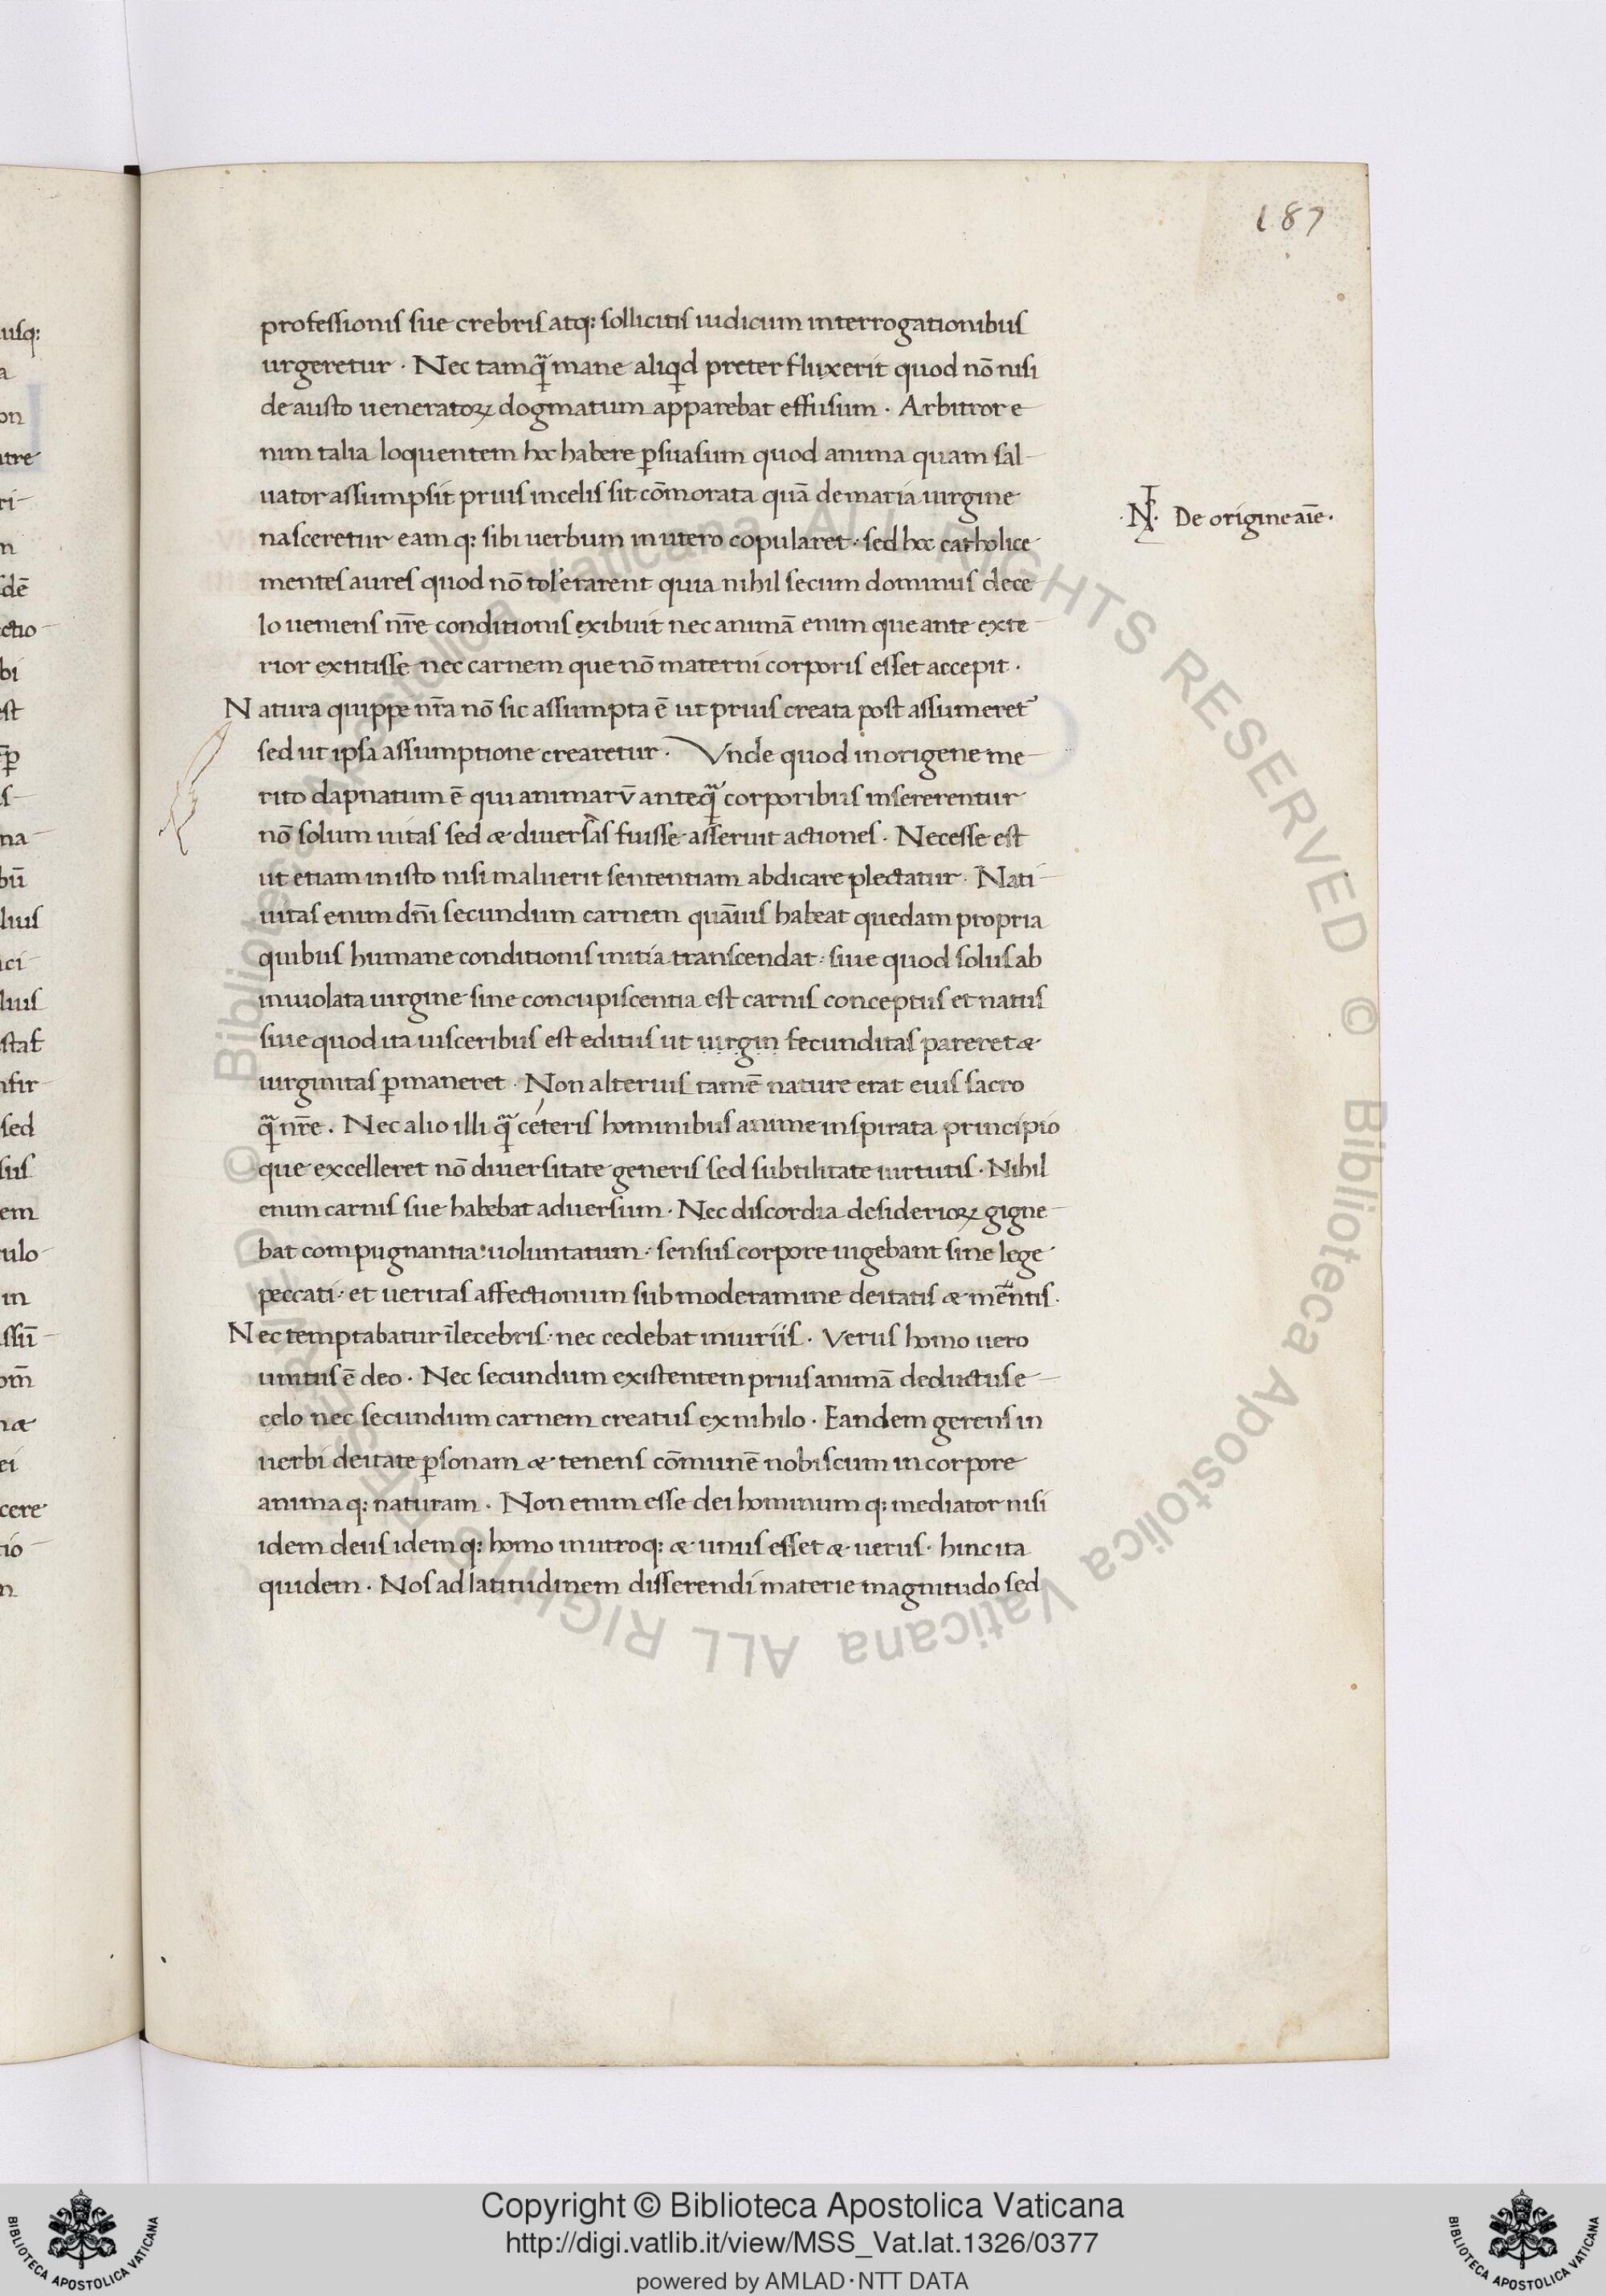 187
professionis sue crebris atq: sollicitis iudicum interrogationibus
urgeretur · Nec tamq̄ mane aliqd preter fluxerit quod nō nisi
de austo ueneratoꝝ dogmatum apparebat effusum · Arbitror e
nim talia loquentem hoc habere ꝑsuasum quod anima quam sal
uator assumpsit prius in celis sit cōmorata quā de maria uirgine
nasceretur eam q: sibi uerbum in utero copularet · sed hoc catholice
mentes aures quod nō tolerarent quia nihil secum dominus de ce
lo ueniens nr̄e conditionis exibuit nec animā enim que ante exte
rior extitisse nec carnem que nō materni corporis esset accepit ·
·N· De origine aīe ·
Natura quippe nr̄a nō sic assumpta ē ut prius creata post assumeret᷑
sed ut ipsa assumptione crearetur · Vnde quod in origene me
rito dapnatum ē qui animarū anteq̄ corporibus insererentur
nō solum uitas sed & diuersas fuisse asseruit actiones · Necesse est
ut etiam in isto nisi maluerit sententiam abdicare plectatur · Nati
uitas enim dn̄i secundum carnem quāuis habeat quedam propria
quibus humane conditionis initia transcendat · siue quod solus ab
inuiolata uirgine sine concupiscentia est carnis conceptus et natus
siue quod ita uisceribus est editus ut uirgin fecunditas pareret &
uirginitas ꝑmaneret · Non alterius tamē nature erat eius sacro
q̄ nr̄e · Nec alio illi q̄ ceteris hominibus anime inspirata principio
que excelleret nō diuersitate generis sed subtilitate uirtutis · Nihil
enim carnis sue habebat aduersum · Nec discordia desiderioꝝ gigne
bat compugnantia uoluntatum · sensus corpore uigebant sine lege
peccati · et ueritas affectionum sub moderamine deitatis & mēntis ·
Nec temptabatur īlecebris · nec cedebat iniuriis · Verus homo uero
unitus ē deo · Nec secundum existentem prius animā deductus e
celo nec secundum carnem creatus ex nihilo · Eandem gerens in
uerbi deitate ꝑsonam & tenens cōmunē nobiscum in corpore
anima q: naturam · Non enim esse dei hominum q: mediator nisi
idem deus idem q: homo in utroq: & unus esset & uerus · hinc ita
quidem · Nos ad latitudinem disserendi materie magnitudo sed
Copyright © Biblioteca Apostolica Vaticana
http://digi.vatlib.it/view/MSS_Vat.lat.1326/0377
powered by AMLAD·NTT DATA